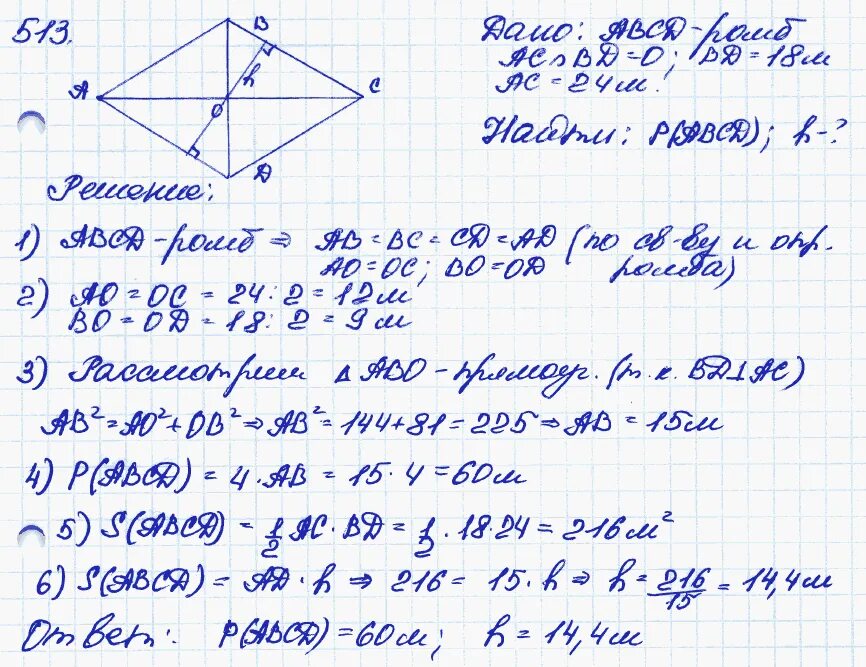 513.
B
A
C
O
h
D
Дано: ABCD-ромб
AC∩BD=O; BD=18м
AC=24м.
Найти: P(ABCD); h-?
Решение:
1) ABCD-ромб ⇒ AB=BC=CD=AD (по св-ву и опр.
AO=OC; BO=OD ромба)
2) AO=OC=24:2=12м
BO=OD=18:2=9м
3) Рассмотрим ΔABO-прямоуг. (т.к. BD⊥AC)
AB²=AO²+OB²⇒AB²=144+81=225⇒AB=15м
4) P(ABCD)=4·AB=15·4=60м
5) S(ABCD)=1/2 AC·BD=1/2·18·24=216м²
6) S(ABCD)=AD·h⇒216=15·h⇒h=216/15=14,4м
Ответ: P(ABCD)=60м; h=14,4м